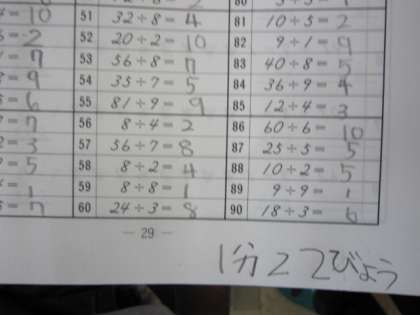 51 32÷8= 4 81 10÷5= 2
52 20÷2= 10 82 9÷1= 9
53 56÷8= 7 83 40÷8= 5
54 35÷7= 5 84 36÷9= 4
55 81÷9= 9 85 12÷4= 3
56 8÷4= 2 86 60÷6= 10
57 56÷7= 8 87 25÷5= 5
58 8÷2= 4 88 10÷2= 5
59 8÷8= 1 89 9÷9= 1
60 24÷3= 8 90 18÷3= 6
— 29 —
1分22びょう